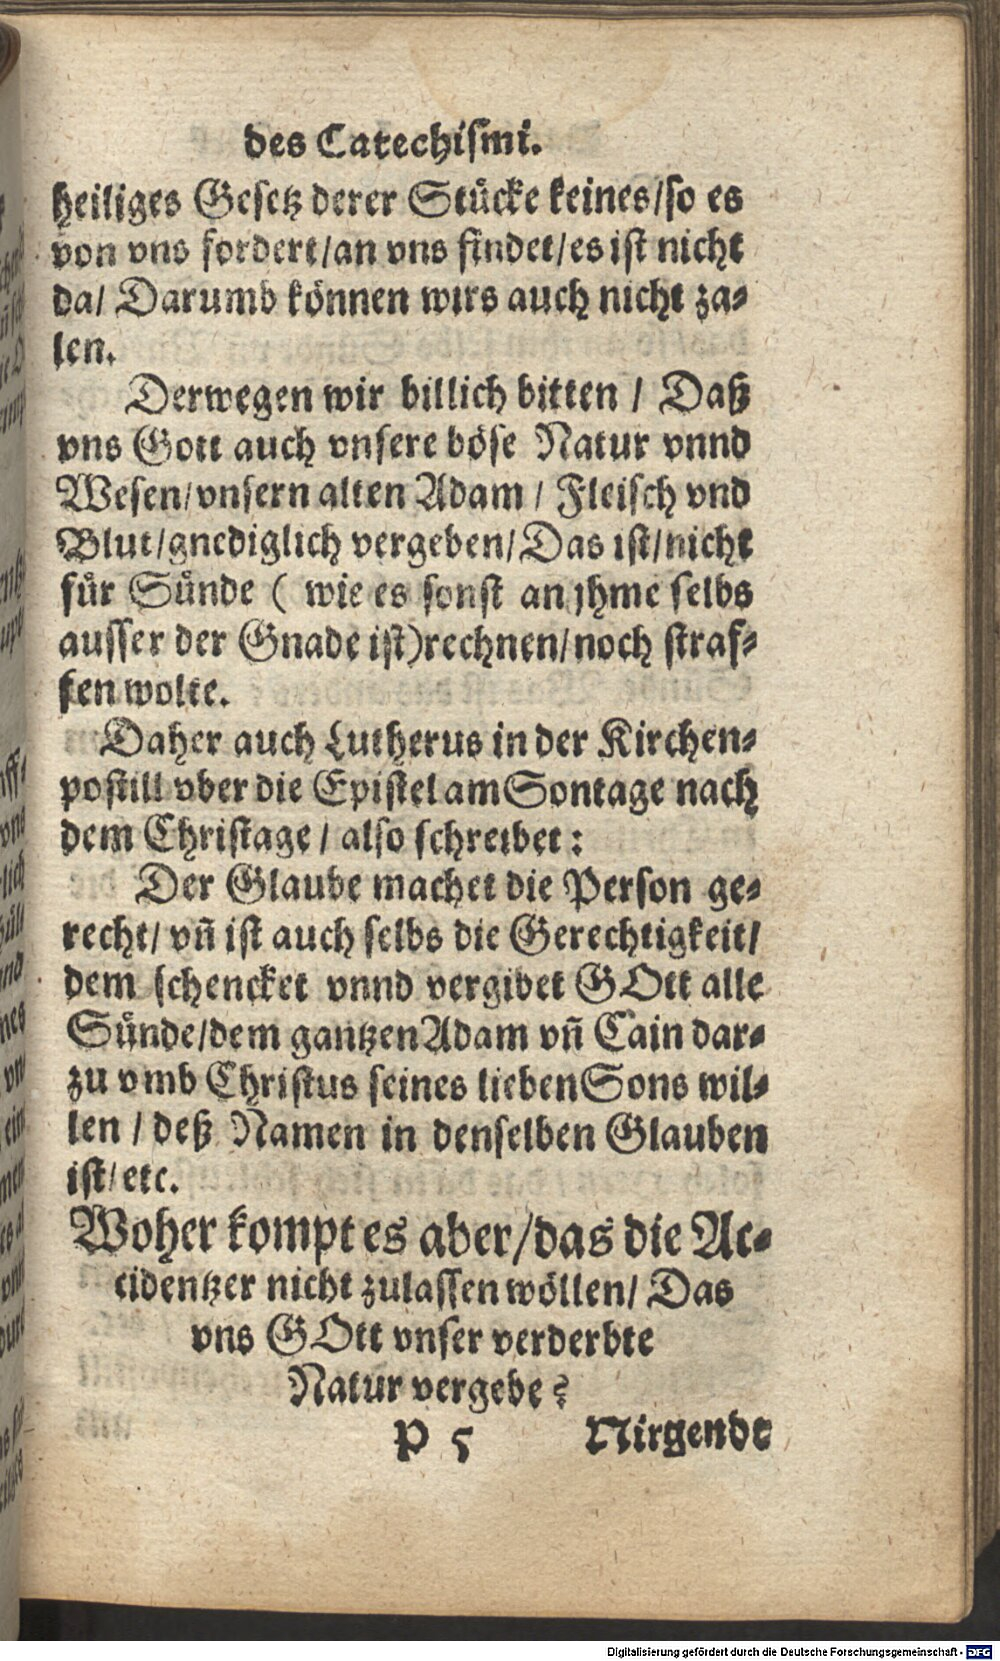 des Catechismi.
heiliges Gesetz derer Stücke keines/so es
von vns fordert/an vns findet/es ist nicht
da/ Darumb können wirs auch nicht za-
len.
Derwegen wir billich bitten / Daß
vns Gott auch vnsere böse Natur vnnd
Wesen/vnsern alten Adam / Fleisch vnd
Blut/gnediglich vergeben/Das ist/nicht
für Sünde ( wie es sonst an jhme selbs
ausser der Gnade ist)rechnen/noch straf-
fen wolte.
Daher auch Lutherus in der Kirchen-
postill vber die Epistel am Sontage nach
dem Christage / also schreibet:
Der Glaube machet die Person ge-
recht/ vn̄ ist auch selbs die Gerechtigkeit/
dem schencket vnnd vergibet GOtt alle
Sünde/dem gantzen Adam vn̄ Cain dar-
zu vmb Christus seines lieben Sons wil-
len / deß Namen in denselben Glauben
ist/etc.
Woher kompt es aber/das die Ac-
cidentzer nicht zulassen wöllen/ Das
vns GOtt vnser verderbte
Natur vergebe?
P 5 Nirgendt
Digitalisierung gefördert durch die Deutsche Forschungsgemeinschaft - DFG